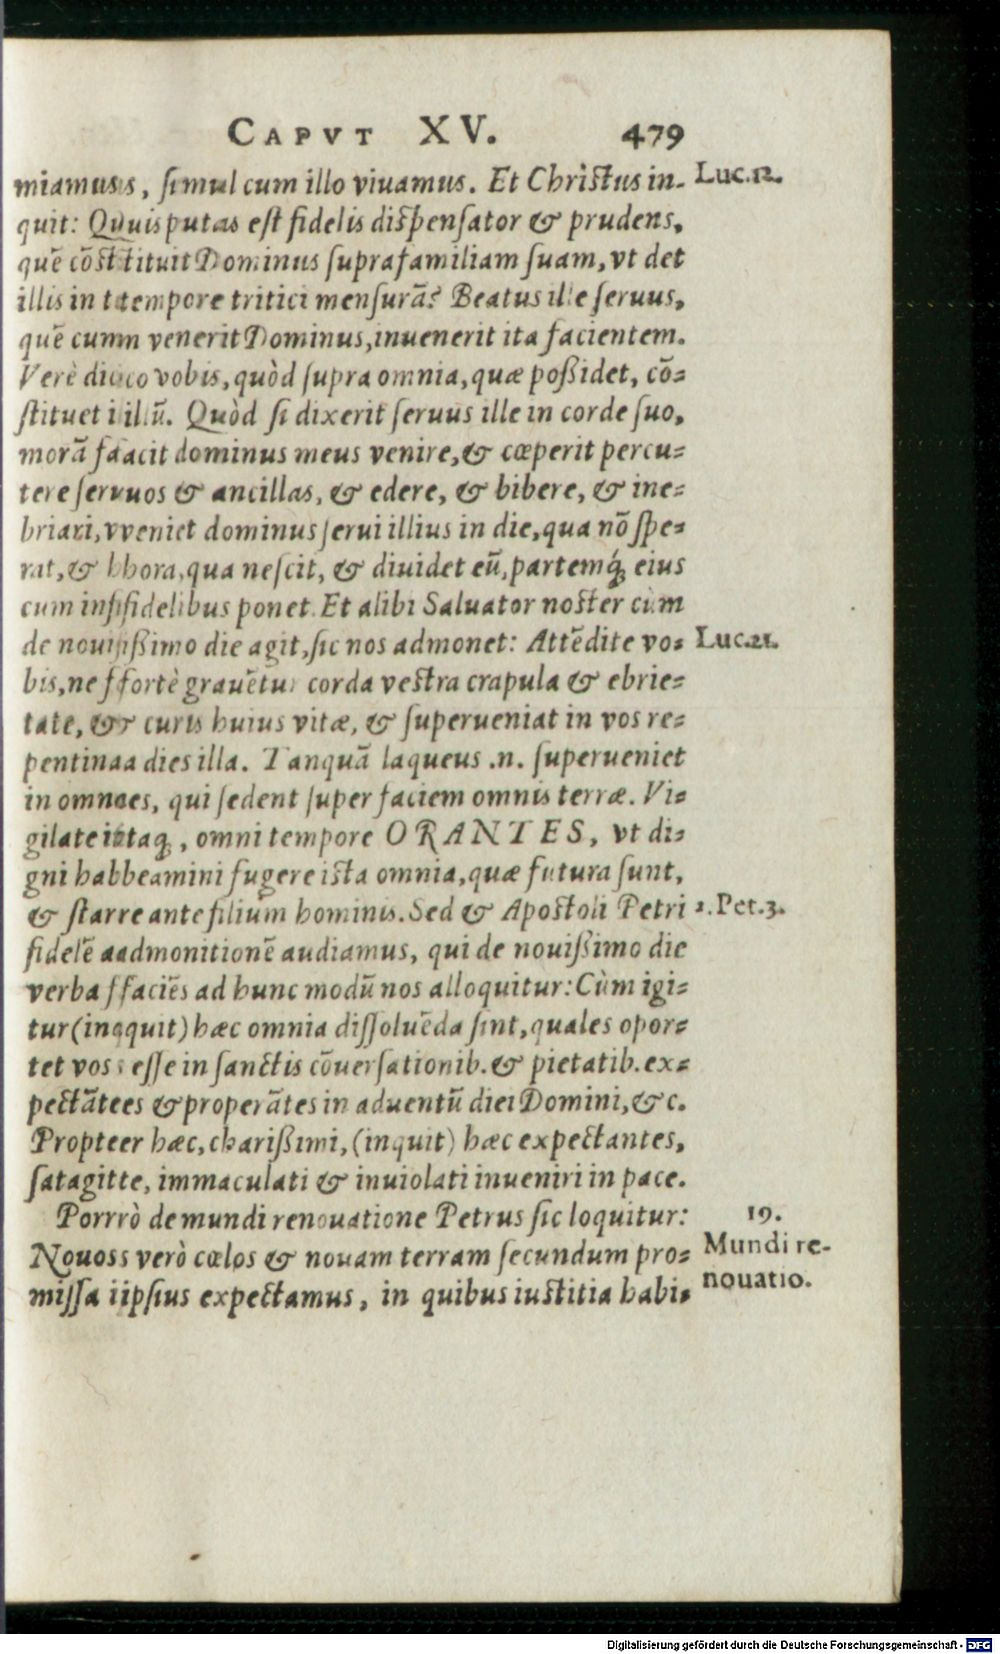 CAPVT XV. 479
miamuss, ſimul cum illo viuamus. Et Chriſtus in- Luc.12.
quit: Quuis putas eſt fidelis diſpenſator & prudens,
quẽ cõſttituit Dominus ſupra familiam ſuam, vt det
illis in ttempore tritici menſurã? Beatus ille ſeruus,
quẽ cumm venerit Dominus, inuenerit ita facientem.
Verè dicco vobis, quòd ſupra omnia, quæ poßidet, cõ-
ſtituet iillũ. Quòd ſi dixerit ſeruus ille in corde ſuo,
morã faacit dominus meus venire, & cœperit percu-
tere ſeruuos & ancillas, & edere, & bibere, & ine-
briari, vveniet dominus ſerui illius in die, qua nõ ſpe-
rat, & hhora, qua neſcit, & diuidet eũ, partemq́; eius
cum inffidelibus ponet. Et alibi Saluator noſter cùm
de nouißimo die agit, ſic nos admonet: Attẽdite vo- Luc.21.
bis, ne ffortè grauẽtur corda veſtra crapula & ebrie-
tate, & curis huius vitæ, & ſuperueniat in vos re-
pentinaa dies illa. Tanquã laqueus .n. ſuperueniet
in omnees, qui ſedent ſuper faciem omnis terræ. Vi-
gilate iitaq;, omni tempore ORANTES, vt di-
gni habbeamini fugere iſta omnia, quæ futura ſunt,
& ſtarre ante filium hominis. Sed & Apoſtoli Petri 2.Pet.3.
fidelẽ aadmonitionẽ audiamus, qui de nouißimo die
verba ffaciẽs ad hunc modũ nos alloquitur: Cùm igi-
tur (inqquit) hæc omnia diſſoluẽda ſint, quales opor-
tet vos eſſe in ſanctis cõuerſationib. & pietatib. ex-
pectãtees & properãtes in aduentũ diei Domini, &c.
Propteer hæc, charißimi, (inquit) hæc expectantes,
ſatagitte, immaculati & inuiolati inueniri in pace.
Porrrò de mundi renouatione Petrus ſic loquitur: 19.
Nouoss verò cœlos & nouam terram ſecundum pro- Mundi re-
miſſa iipſius expectamus, in quibus iuſtitia habi- nouatio.
Digitalisierung gefördert durch die Deutsche Forschungsgemeinschaft - DFG